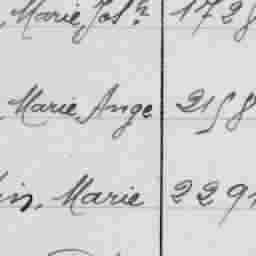 Marie Josh 1728
Marie Ange 2158
in, Marie 2291